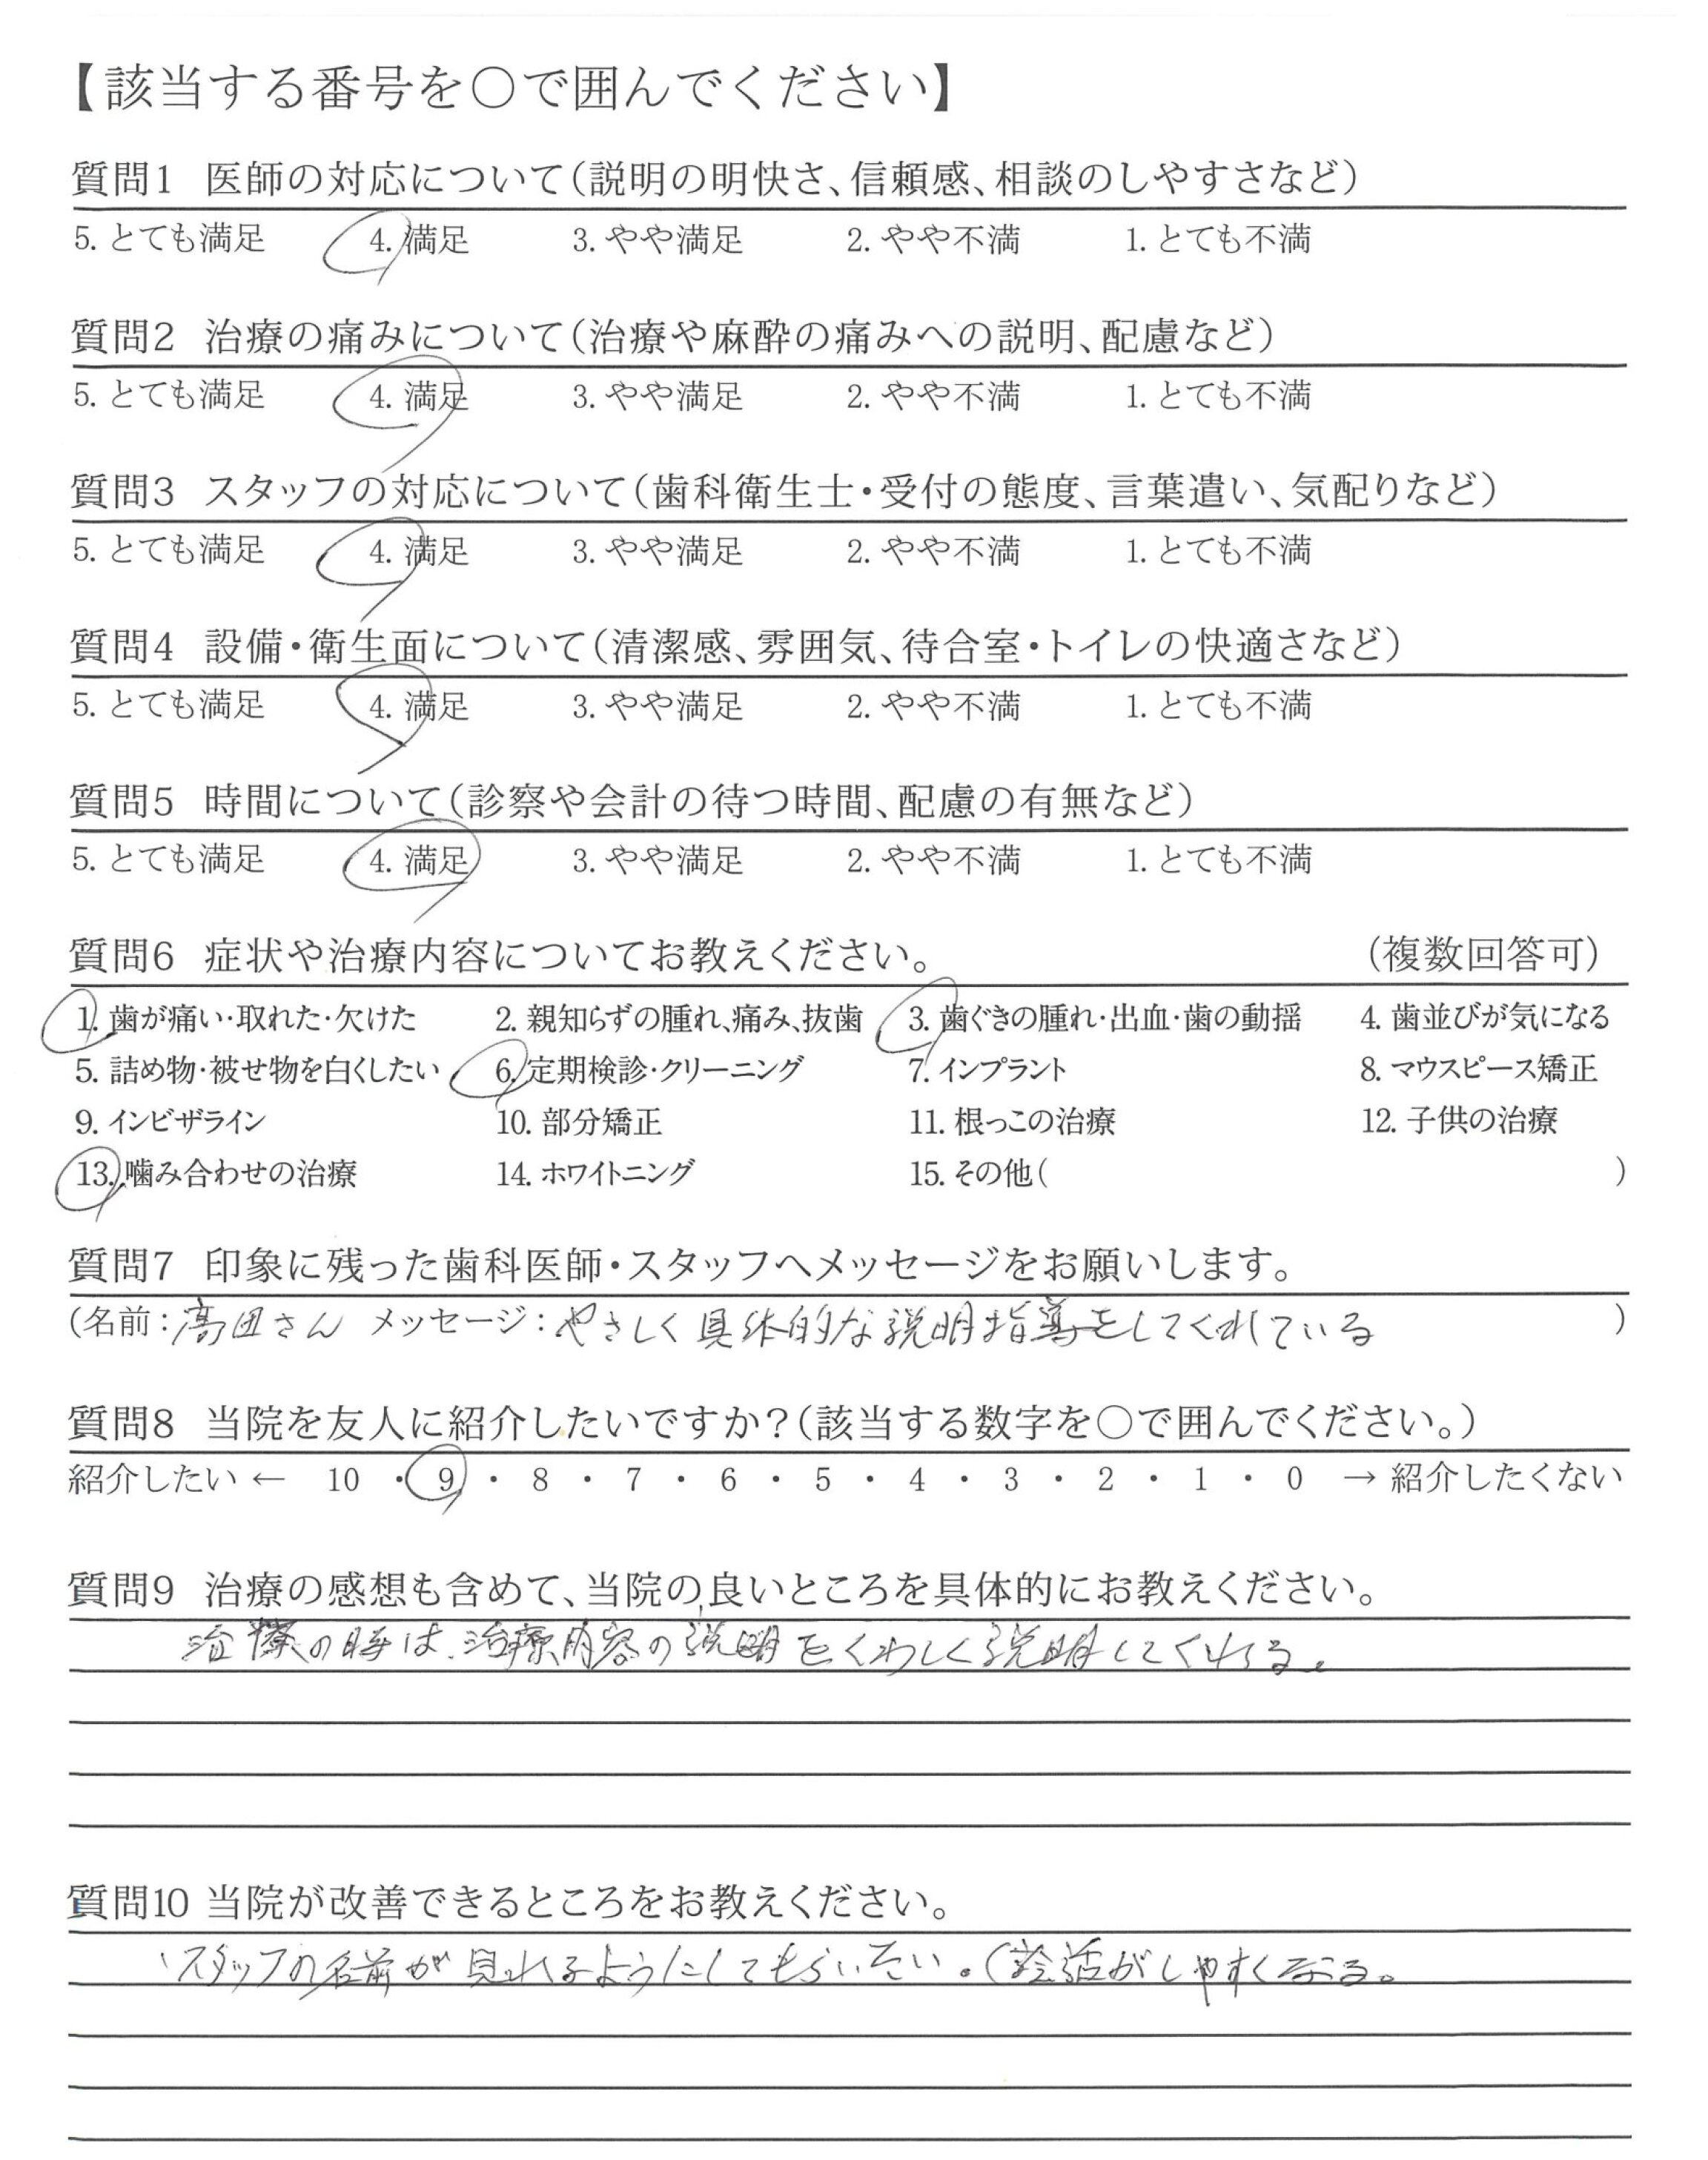 【該当する番号を〇で囲んでください】
質問1 医師の対応について(説明の明快さ、信頼感、相談のしやすさなど)
5. とても満足 4. 満足 3. やや満足 2. やや不満 1. とても不満
質問2 治療の痛みについて(治療や麻酔の痛みへの説明、配慮など)
5. とても満足 4. 満足 3. やや満足 2. やや不満 1. とても不満
質問3 スタッフの対応について(歯科衛生士・受付の態度、言葉遣い、気配りなど)
5. とても満足 4. 満足 3. やや満足 2. やや不満 1. とても不満
質問4 設備・衛生面について(清潔感、雰囲気、待合室・トイレの快適さなど)
5. とても満足 4. 満足 3. やや満足 2. やや不満 1. とても不満
質問5 時間について(診察や会計の待つ時間、配慮の有無など)
5. とても満足 4. 満足 3. やや満足 2. やや不満 1. とても不満
質問6 症状や治療内容についてお教えください。 (複数回答可)
1. 歯が痛い・取れた・欠けた 2. 親知らずの腫れ、痛み、抜歯 3. 歯ぐきの腫れ・出血・歯の動揺 4. 歯並びが気になる
5. 詰め物・被せ物を白くしたい 6. 定期検診・クリーニング 7. インプラント 8. マウスピース矯正
9. インビザライン 10. 部分矯正 11. 根っこの治療 12. 子供の治療
13. 噛み合わせの治療 14. ホワイトニング 15. その他( )
質問7 印象に残った歯科医師・スタッフへメッセージをお願いします。
(名前：高田さん メッセージ：やさしく具体的な説明指導をしてくれている )
質問8 当院を友人に紹介したいですか？(該当する数字を〇で囲んでください。)
紹介したい ← 10 ・ 9 ・ 8 ・ 7 ・ 6 ・ 5 ・ 4 ・ 3 ・ 2 ・ 1 ・ 0 → 紹介したくない
質問9 治療の感想も含めて、当院の良いところを具体的にお教えください。
治療の時は、治療内容の説明をくわしく説明してくれる。
質問10 当院が改善できるところをお教えください。
スタッフの名前が見れるようにしてもらいたい。(会話がしやすくなる。